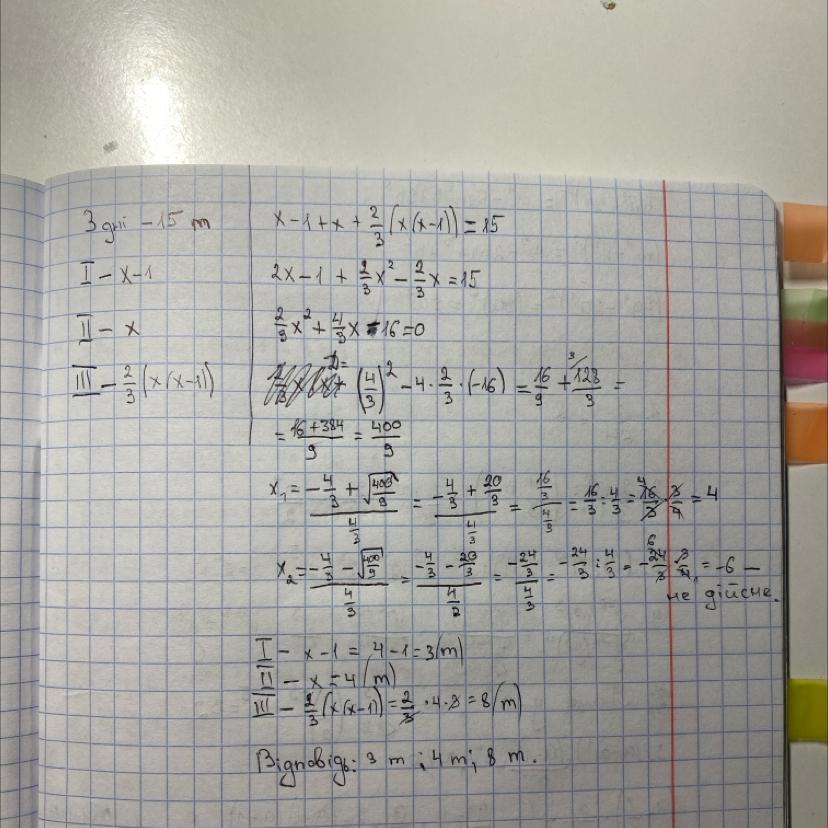 3 дні - 15 т
I - x-1
II - x
III - 2/3 (x(x-1))
x-1+x+2/3(x(x-1))=15
2x-1+2/3x²-2/3x=15
2/3x²+4/3x-16=0
D=(4/3)²-4·2/3·(-16)=16/9+128/3=
=16+384/9=400/9
x₁=(-4/3+√400/9)/(4/3)=(-4/3+20/3)/(4/3)=(16/3)/(4/3)=16/3:4/3=16/3·3/4=4
x₂=(-4/3-√400/9)/(4/3)=(-4/3-20/3)/(4/3)=(-24/3)/(4/3)=-24/3:4/3=-24/3·3/4=-6 -
не дійсне.
I - x-1=4-1=3(т)
II - x=4(т)
III - 2/3(x(x-1))=2/3·4·3=8(т)
Відповідь: 3 т; 4 т; 8 т.